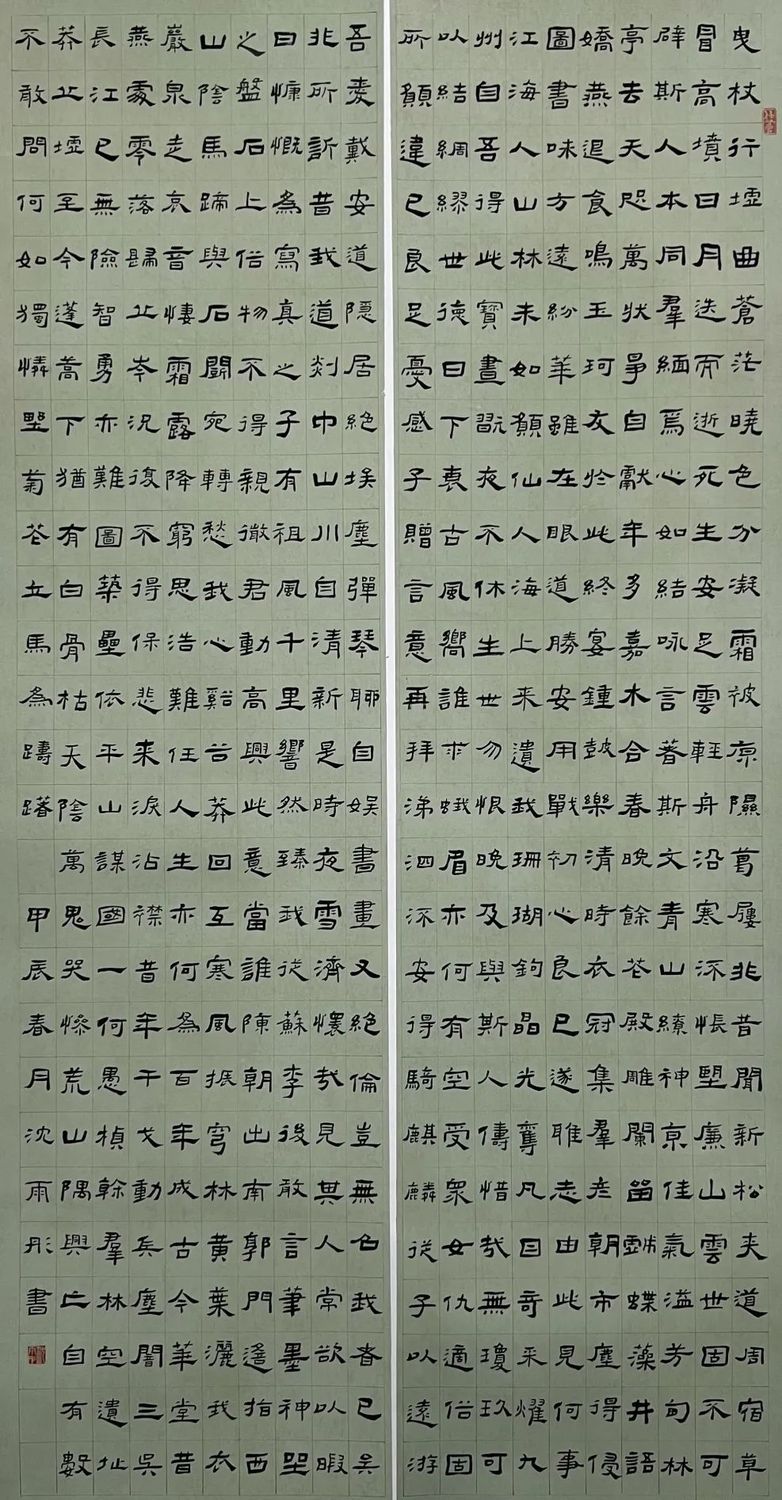 曳杖行墟曲蒼茫曉色分凝霜被原隰葛屨非昔聞新松夾道周宿草
冒高墳日月迭而逝死生安足雲輕舟沿寒流悵望廉山雲世固不可
辟斯人本同羣緬焉心如結詠言著斯文青山繚神京佳氣溢芳甸林
亭去天咫萬狀爭自獻年多嘉木合春晚餘花殿雕闌留戲蝶藻井語
嬌燕退食鳴玉珂友於此終宴鐘鼓樂清時衣冠集羣彥朝市塵得侵
圖書味方遠紛華雖在眼道勝安用戰初心良已遂雅志由此見何事
江海人山林未如顏仙人海上來遺我珊瑚鉤晶光奪凡目奇采燿九
州自吾得此寶晝翫夜不休生世勿恨晚及與斯人儔惜哉無瓊玖可
以結綢繆世德日下衰古風嚮誰求蛾眉亦何有空受衆女仇適俗固
所願違已良足憂感子贈言意再拜涕泗流安得騎麒麟從子以遠游
吾愛戴安道隱居絕埃塵彈琴聊自娛書畫又絕倫豈無召我者已矣
非所訢昔我道剡中山川自清新是時夜雪濟懷哉見其人常欲以暇
日慷慨為寫真之子有祖風千里響然臻我從蘇李後敢言筆墨神坐
之盤石上俗物不得親微君動高興此意當誰陳朝出南郭門遙指西
山陰馬蹄與石鬪宛轉愁我心谿谷莽回互寒風振穹林黃葉灑我衣
巖泉走哀音悽霜露降窮思浩難任人生亦何為百年成古今華堂昔
燕處零落歸丘岑況復不得保悲來淚沾襟昔年干戈動兵塵闇三吳
長江已無險智勇亦難圖築壘依平山謀國一何愚楨榦羣林空遺址
莽丘墟至今蓬蒿下猶有白骨枯天陰萬鬼哭慘荒山隅興亡自有數
不敢問何如獨憐野菊花立馬為躊躇 甲辰春月沈雨彤書